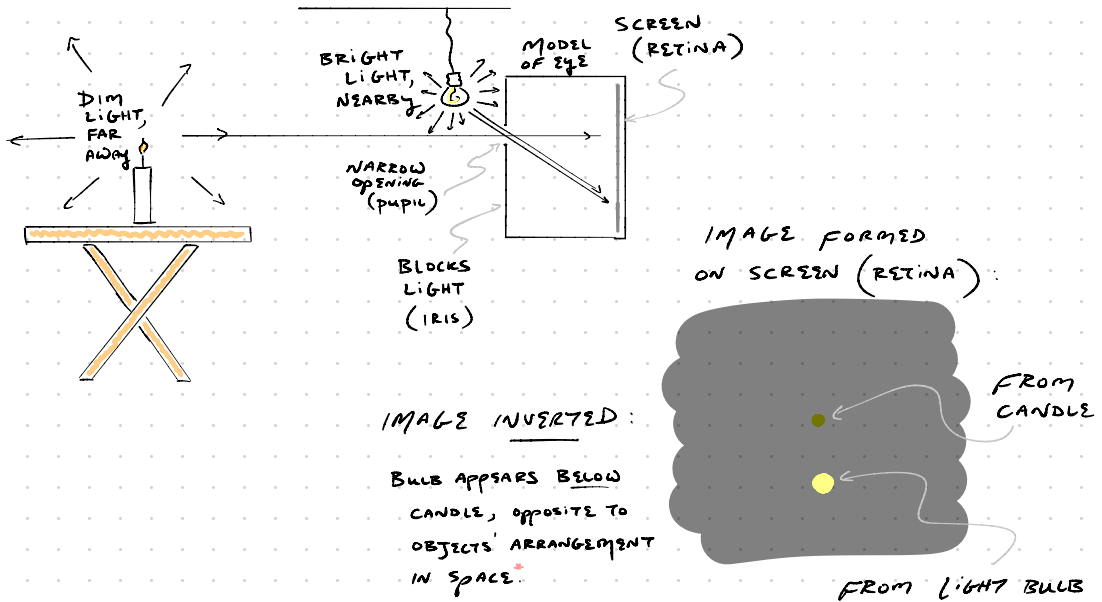 DIM
LIGHT,
FAR
AWAY
BRIGHT
LIGHT,
NEARBY
MODEL
OF EYE
SCREEN
(RETINA)
NARROW
OPENING
(PUPIL)
BLOCKS
LIGHT
(IRIS)
IMAGE FORMED
ON SCREEN (RETINA):
FROM
CANDLE
FROM LIGHT BULB
IMAGE INVERTED:
BULB APPEARS BELOW
CANDLE, OPPOSITE TO
OBJECTS' ARRANGEMENT
IN SPACE.*